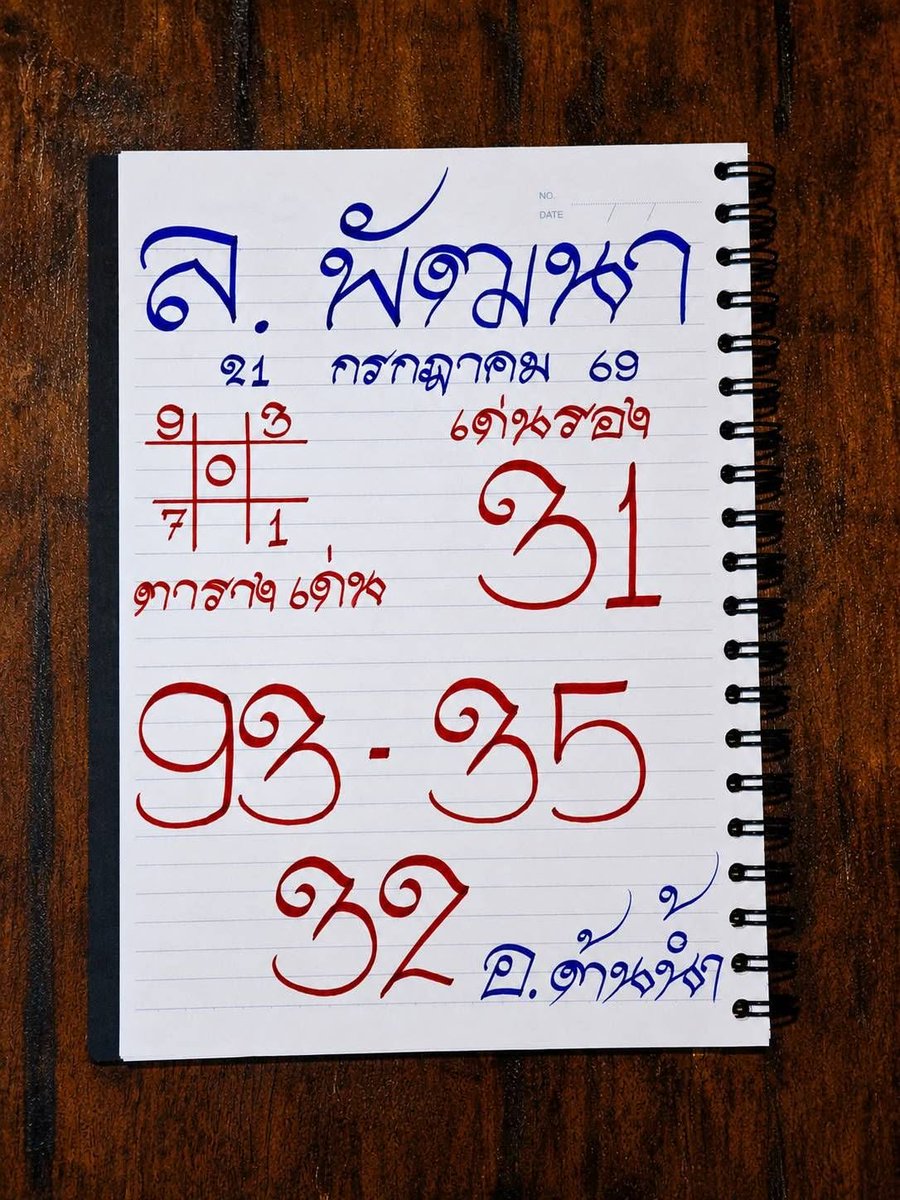 NO.
DATE / /
ล. พัฒนา
21 กรกฎาคม 69
9 3
0
7 1
ตารางเด่น
เด่นรอง
31
93 - 35
32
อ. ต้นน้ำ